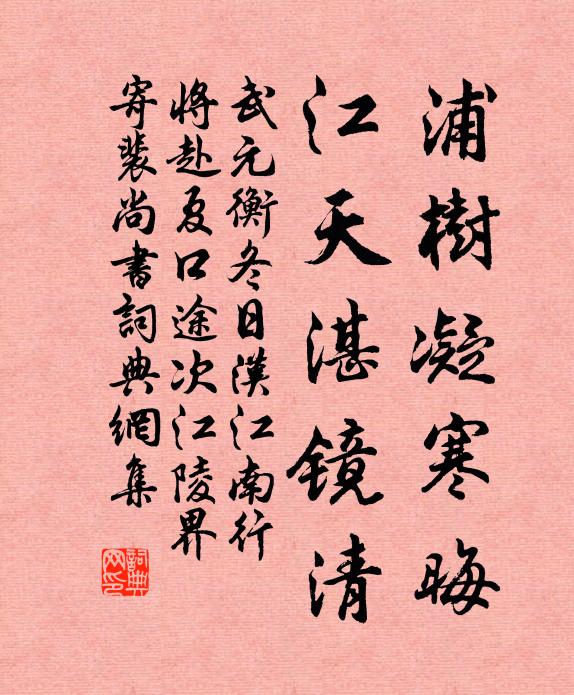 浦樹凝寒晦
江天湛镜清
武元衡冬日漢江南行
将赴夏口途次江陵界
寄裴尚書詞典網集
詞典网印